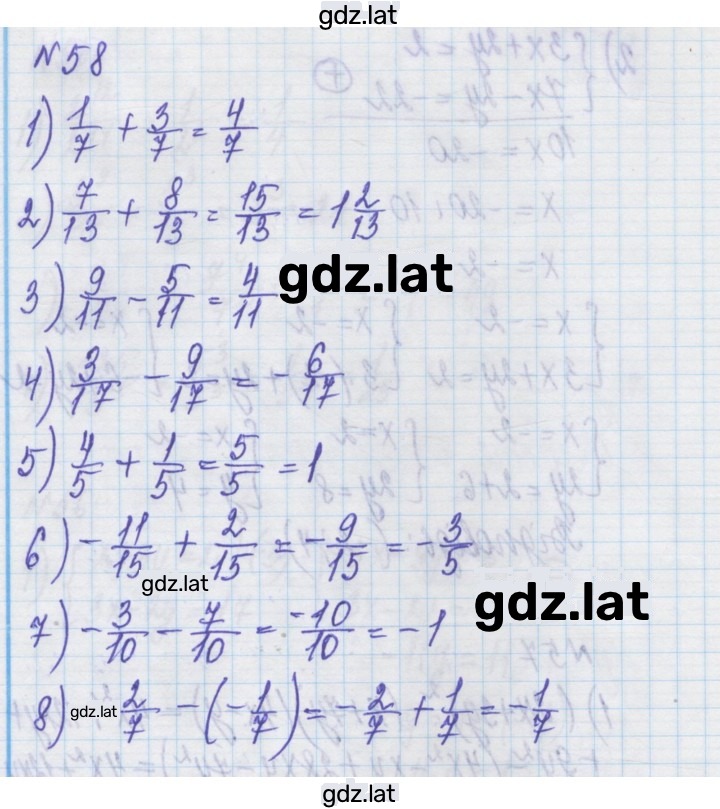 gdz.lat
№58
1) 1/7 + 3/7 = 4/7
2) 7/13 + 8/13 = 15/13 = 1 2/13
3) 9/11 - 5/11 = 4/11
gdz.lat
4) 3/17 - 9/17 = -6/17
5) 4/5 + 1/5 = 5/5 = 1
6) -11/15 + 2/15 = -9/15 = -3/5
gdz.lat
gdz.lat
7) -3/10 - 7/10 = -10/10 = -1
8) gdz.lat 2/7 - (-1/7) = -2/7 + 1/7 = -1/7
gdz.lat